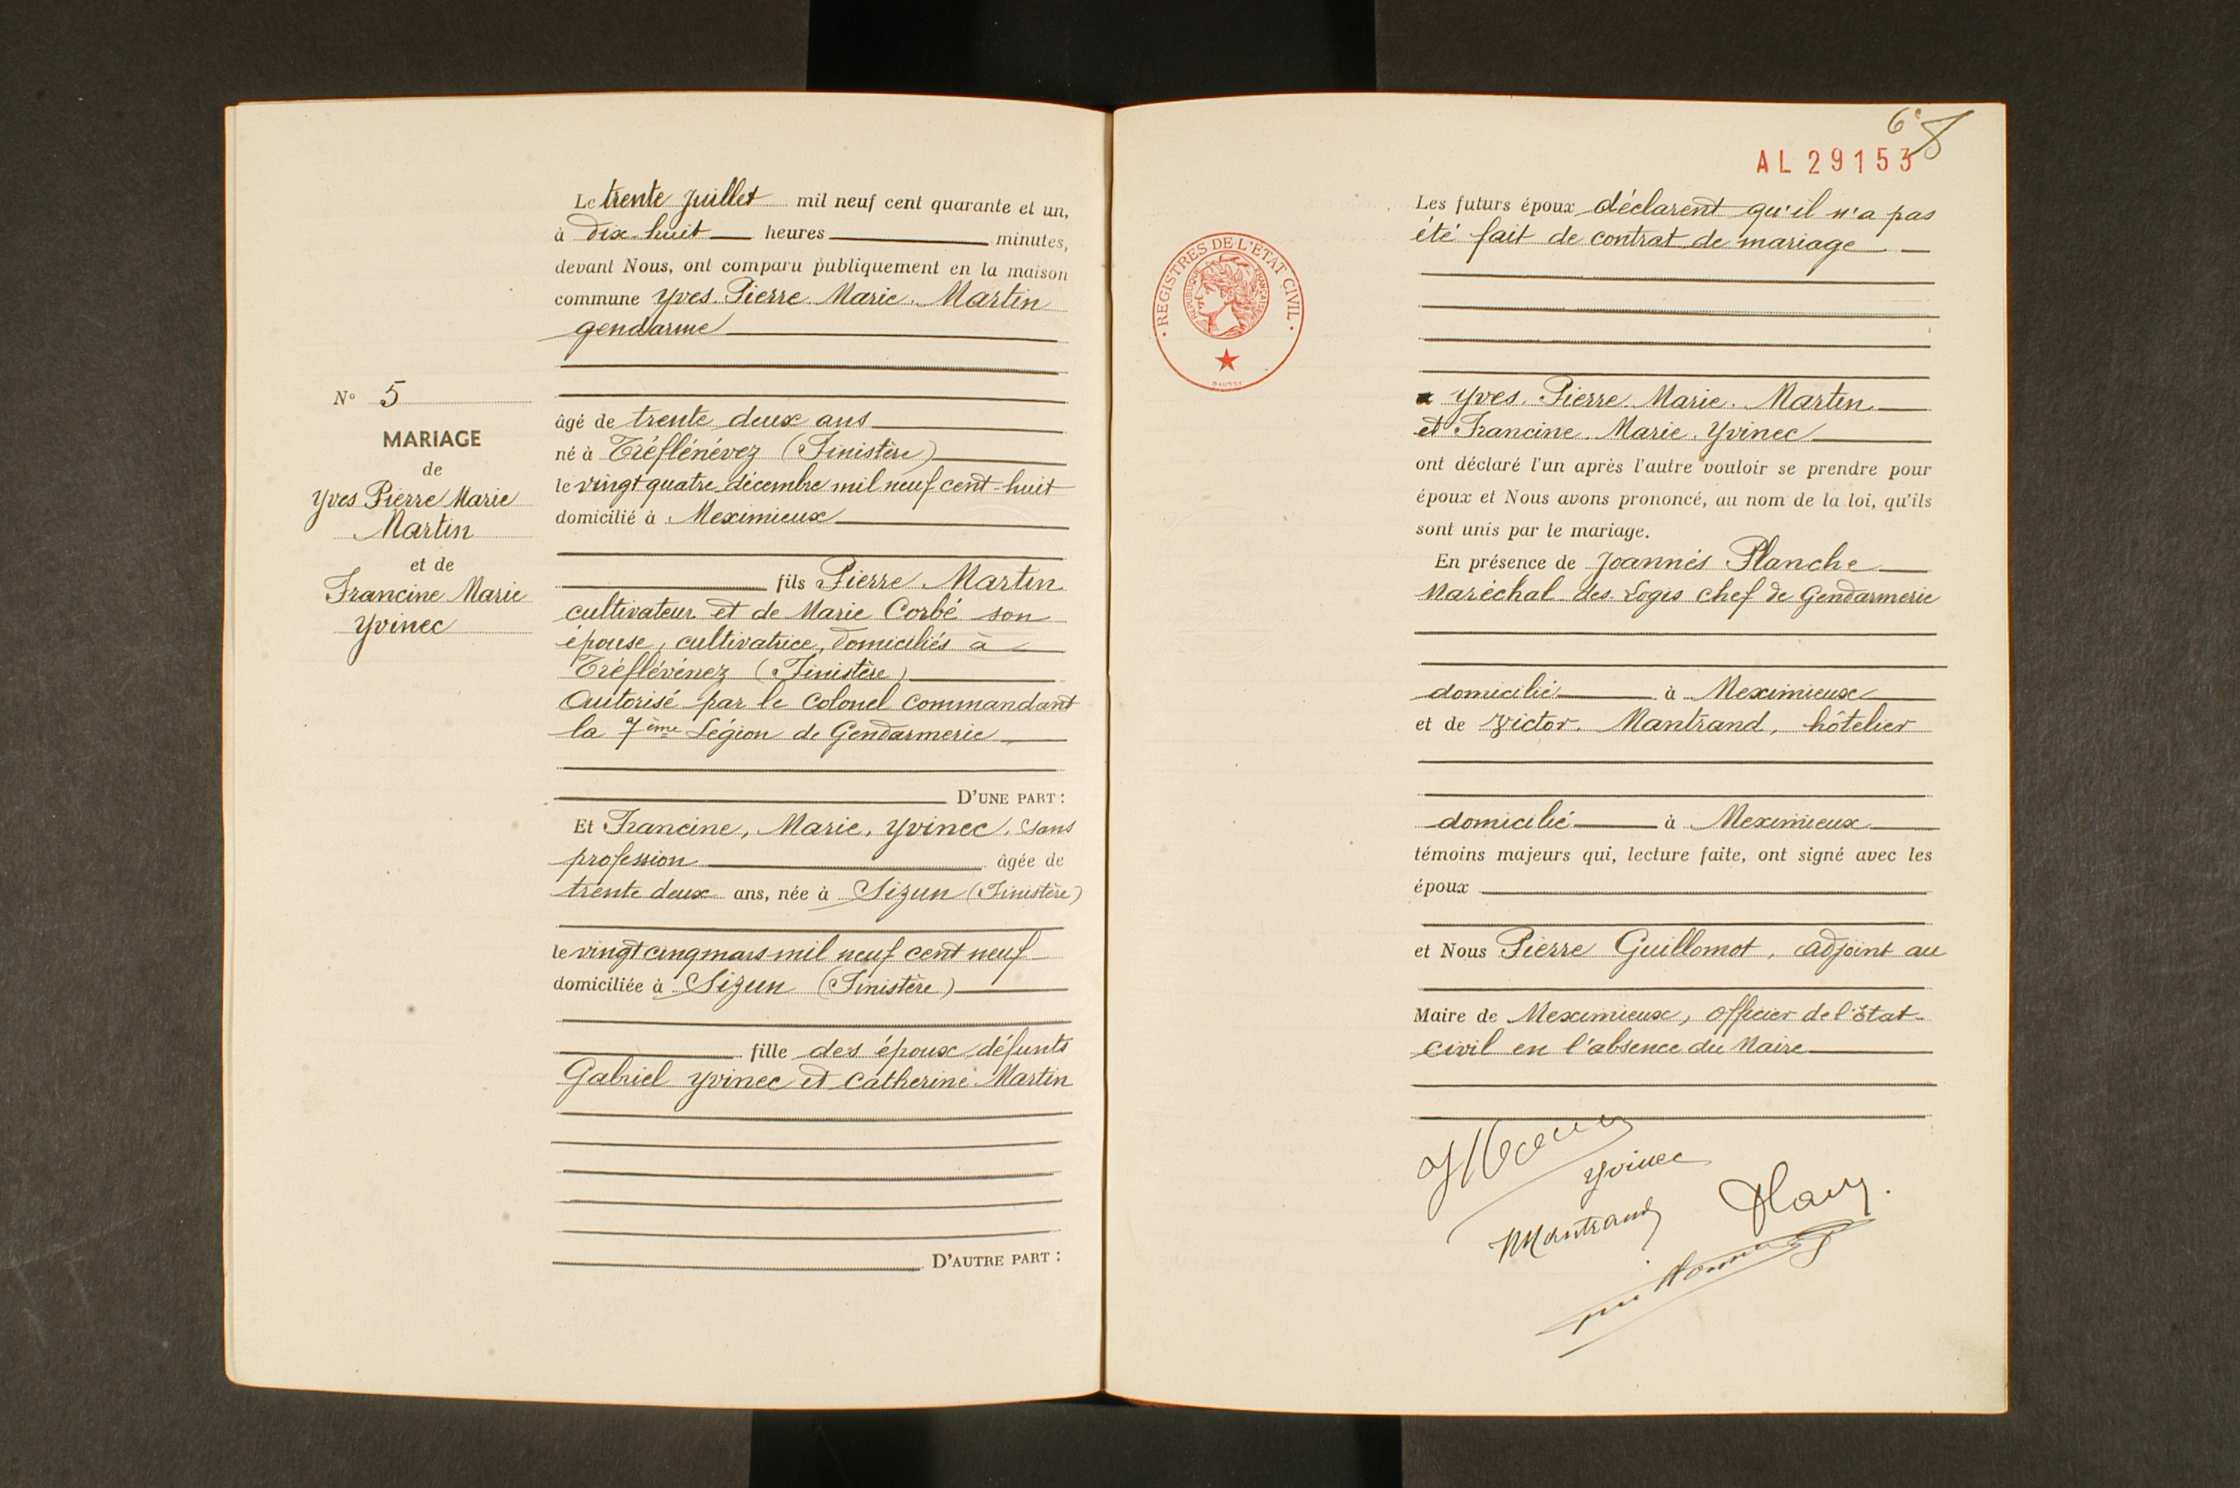 Le trente Juillet mil neuf cent quarante et un,
à dix-huit heures minutes,
devant Nous, ont comparu publiquement en la maison
commune Yves. Pierre. Marie. Martin
gendarme
N° 5
MARIAGE
de
Yves Pierre Marie
Martin
et de
Francine Marie
Yvinec
âgé de trente deux ans
né à Tréflénévez (Finistère)
le vingt quatre décembre mil neuf cent-huit
domicilié à Meximieux
fils Pierre Martin
cultivateur et de Marie Corbé son
épouse, cultivatrice, domiciliés à
Tréflévénez (Finistère)
Autorisé par le Colonel Commandant
la 7ème Légion de Gendarmerie
D'UNE PART :
Et Francine, Marie, Yvinec, sans
profession âgée de
trente deux ans, née à Sizun (Finistère)
le vingt cinq mars mil neuf cent neuf
domiciliée à Sizun (Finistère)
fille des époux défunts
Gabriel Yvinec et Catherine Martin
D'AUTRE PART :
6e
AL 29153
REGISTRES DE L'ÉTAT CIVIL
RÉPUBLIQUE FRANÇAISE
Les futurs époux déclarent qu'il n'a pas
été fait de contrat de mariage
Yves. Pierre. Marie. Martin
et Francine. Marie. Yvinec
ont déclaré l'un après l'autre vouloir se prendre pour
époux et Nous avons prononcé, au nom de la loi, qu'ils
sont unis par le mariage.
En présence de Joannés Planche
Maréchal des Logis Chef de Gendarmerie
domicilié à Meximieux
et de Victor. Mantrand, hôtelier
domicilié à Meximieux
témoins majeurs qui, lecture faite, ont signé avec les
époux
et Nous Pierre Guillomot, adjoint au
Maire de Meximieux, officier de l'état-
civil en l'absence du Maire
Yvinec
Mantrand